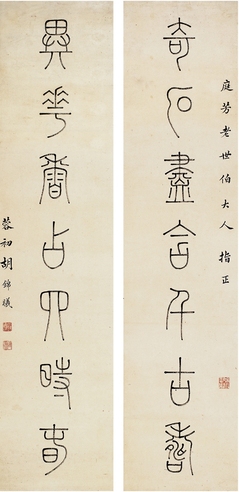 庭芳老世伯大人 指正
奇石盡含千古秀
異花香占四時春
蓉初胡錦